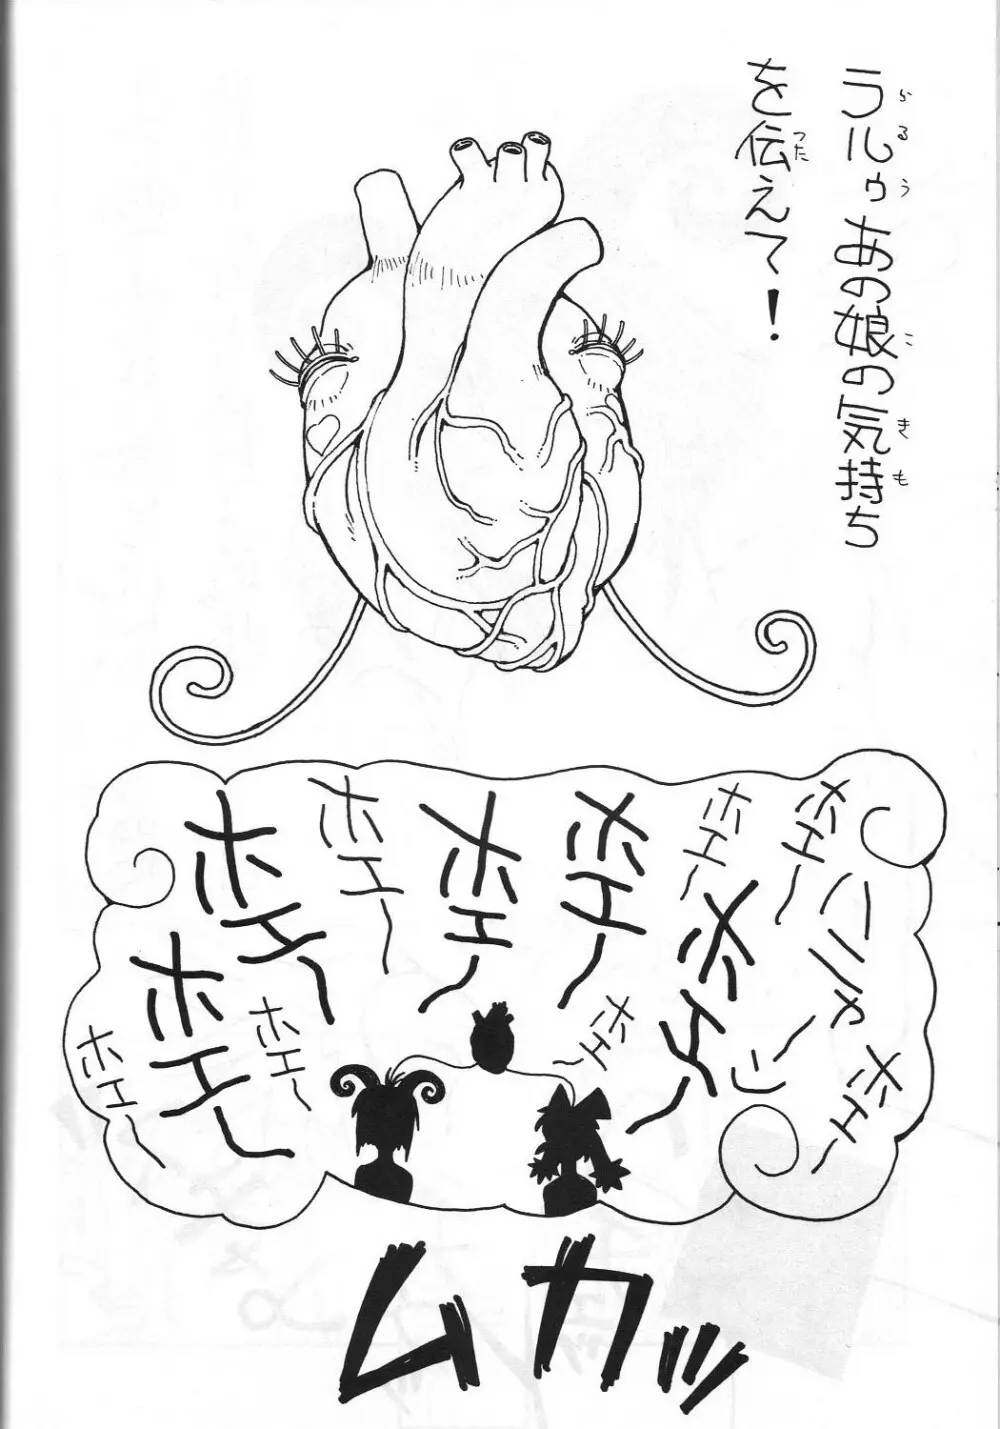 ラルゥあの娘の気持ち
を伝えて！
らるう
こ
きも
つた
ホエ〜
ホエ〜
ハニャーン
ホエ〜
ホエ〜
ホエ〜
ホエ〜
ホエ〜
ホエ〜
ホエ〜
ホエ〜
ホエ〜
ホエ〜
ムカッ